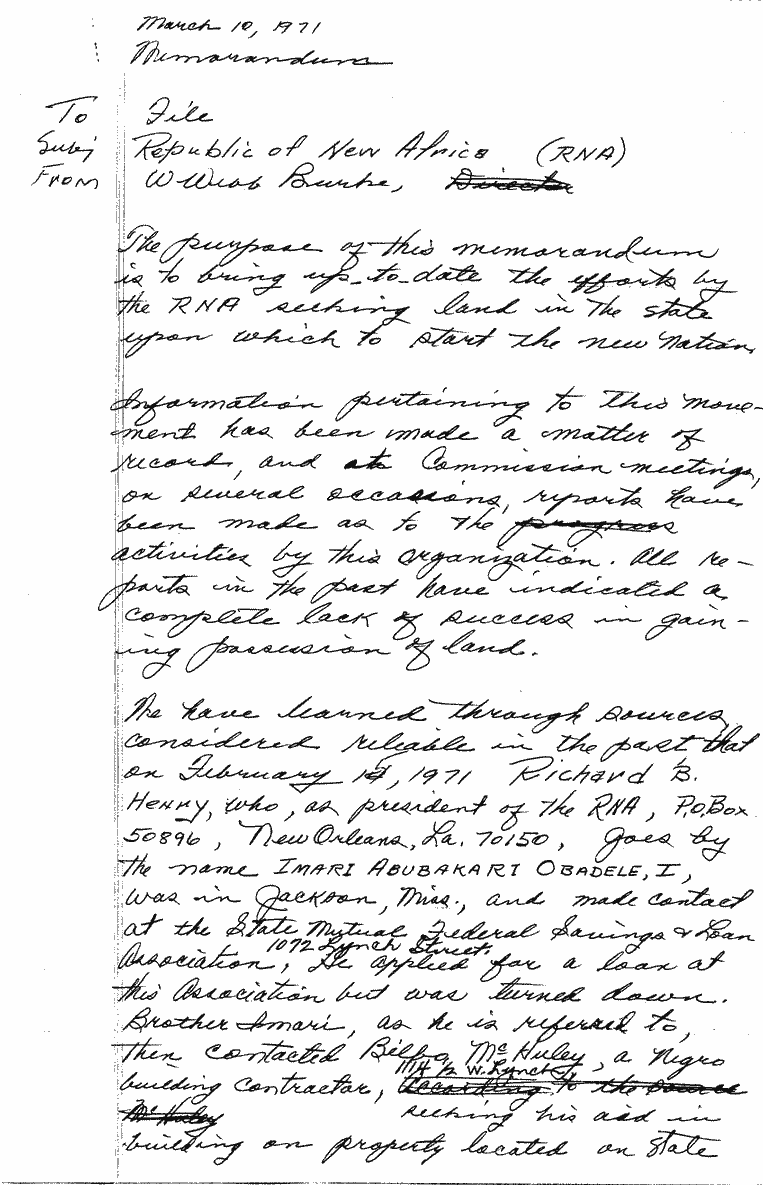 March 10, 1971
Memorandum
To File
Subj Republic of New Africa (RNA)
From W Webb Burke, Director
The purpose of this memorandum
is to bring up-to-date the efforts by
the RNA seeking land in the state
upon which to start the new Nation.
Information pertaining to this move-
ment has been made a matter of
record, and at Commission meetings,
on several occasions, reports have
been made as to the progress
activities by this organization. All re-
ports in the past have indicated a
complete lack of success in gain-
ing possession of land.
We have learned through sources
considered reliable in the past that
on February 1, 1971 Richard B.
Henry, who, as president of the RNA, P.O. Box
50896, New Orleans, La. 70150, goes by
the name IMARI ABUBAKARI OBADELE, I,
was in Jackson, Miss., and made contact
at the State Mutual Federal Savings & Loan
1072 Lynch Street.
Association, He applied for a loan at
this Association but was turned down.
Brother Imari, as he is referred to,
then contacted Bilbo McHuley, a Negro
1114 1/2 W. Lynch
building contractor, according to the source
McHuley seeking his aid in
building on property located on State